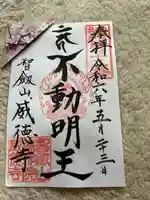 奉拝 令和六年五月二十三日
不動明王
智劔山 威徳寺